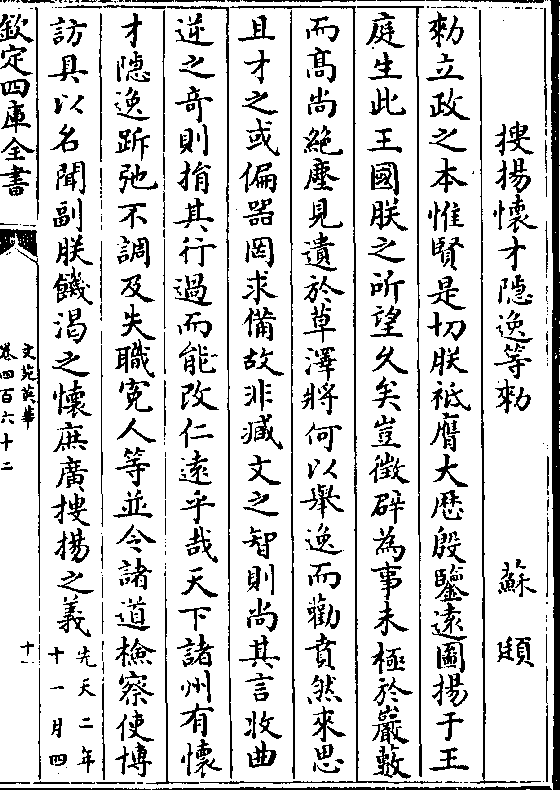 搜揚懷才隠逸等勑　蘇頲
勑立政之本惟賢是切朕祗膺大歴殷鑒遠圖揚于王
庭生此王國朕之所望久矣豈徵辟為事未極於巖藪
而髙尚絶塵見遺於草澤將何以舉逸而勸賁然來思
且才之或偏器罔求備故非臧文之智則尚其言收曲
逆之奇則捐其行過而能改仁遠乎哉天下諸州有懷
才隠逸跅弛不調及失職寃人等並令諸道檢察使博
訪具以名聞副朕饑渇之懷庶廣搜揚之義先天二年
十一月四
欽定四庫全書
文苑英華
卷四百六十二
十一